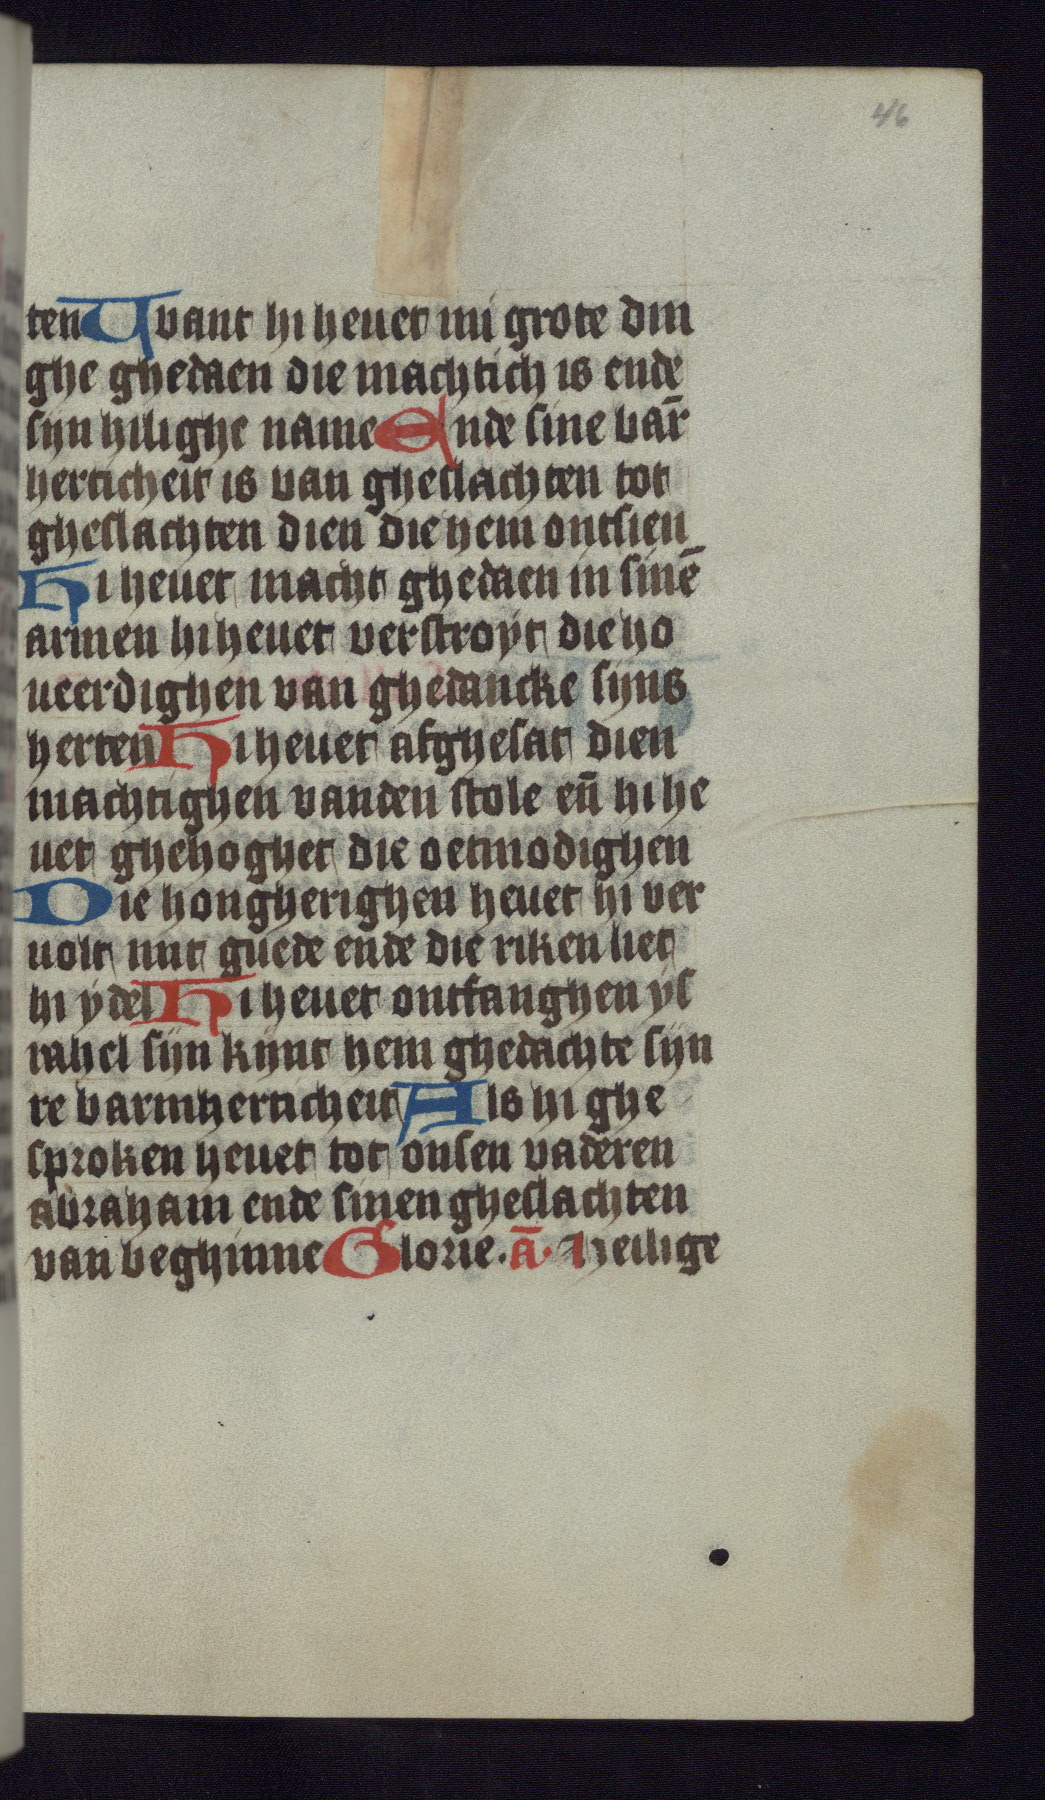 46
ten Uvant hi heuet mi grote din
ghe ghedaen die machtich is ende
sijn hilighe name Ende sine bar̄
herticheit is van gheslachten tot
gheslachten dien die hem ontsien
Hi heuet macht ghedaen in sinē
armen hi heuet verstroyt die ho
ueerdighen van ghedancke sijns
herten Hi heuet afghesat dien
machtighen vanden stole en̄ hi he
uet ghehoghet die oetmodighen
Die hongherighen heuet hi ver
uolt mit guede ende die riken liet
hi ydel Hi heuet ontfanghen ys
rahel sijn kijnt hem ghedachte sijn
re barmherticheit Als hi ghe
sproken heuet tot onsen vaderen
abraham ende sinen gheslachten
van beghinne Glorie. ā. heilige